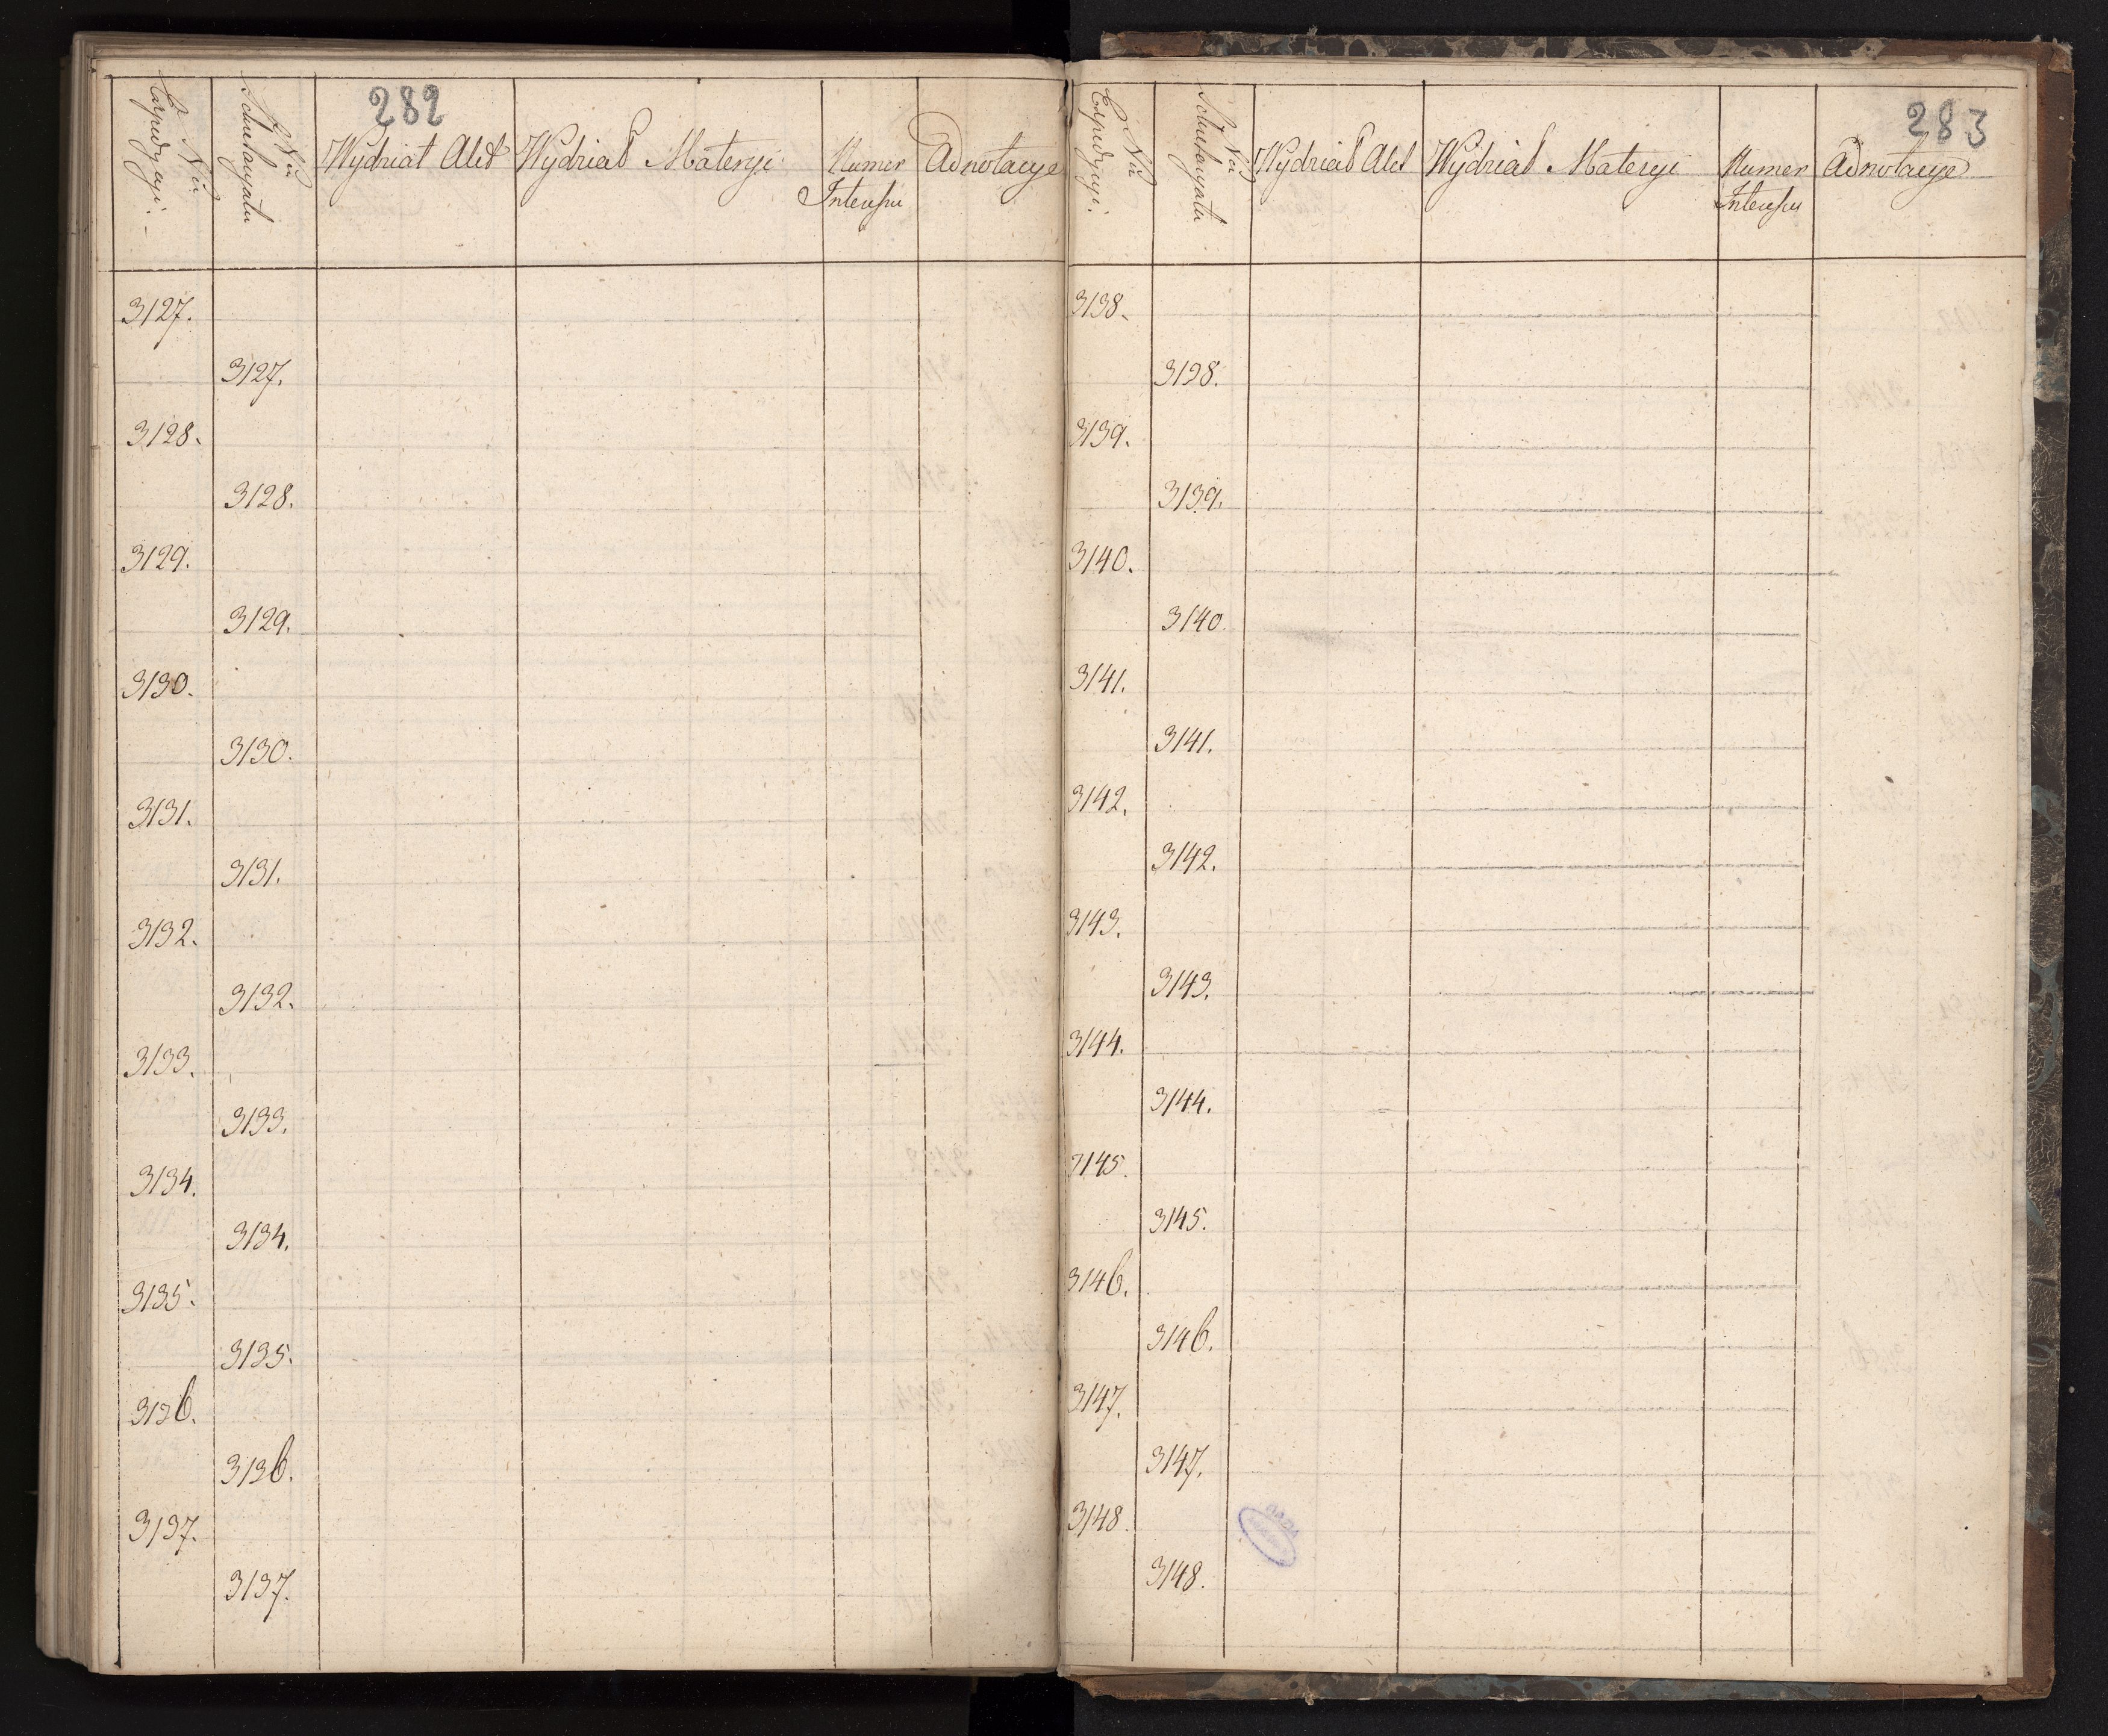 282
Nru Expedycyi.
Nru Scholarzatu
Wydział Akt
Wydział Materyi
Numer
Interesu
Adnotacye
3127.
3127.
3128.
3128.
3129.
3129.
3130.
3130.
3131.
3131.
3132.
3132.
3133.
3133.
3134.
3134.
3135.
3135.
3136.
3136.
3137.
3137.
283
Nru Expedycyi.
Wydział Akt
Wydział Materyi
Numer
Interesu
Adnotacye
3138.
3128.
3139.
3139.
3140.
3140.
3141.
3141.
3142.
3142.
3143.
3143.
3144.
3144.
3145.
3145.
3146.
3146.
3147.
3147.
3148.
3148.